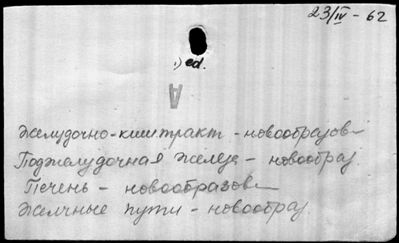 23/IV - 62
1) ed.
A
Желудочно-киш тракт - новообразов
Поджелудочная железа - новообраз
Печень - новообразов
Желчные пути - новообраз